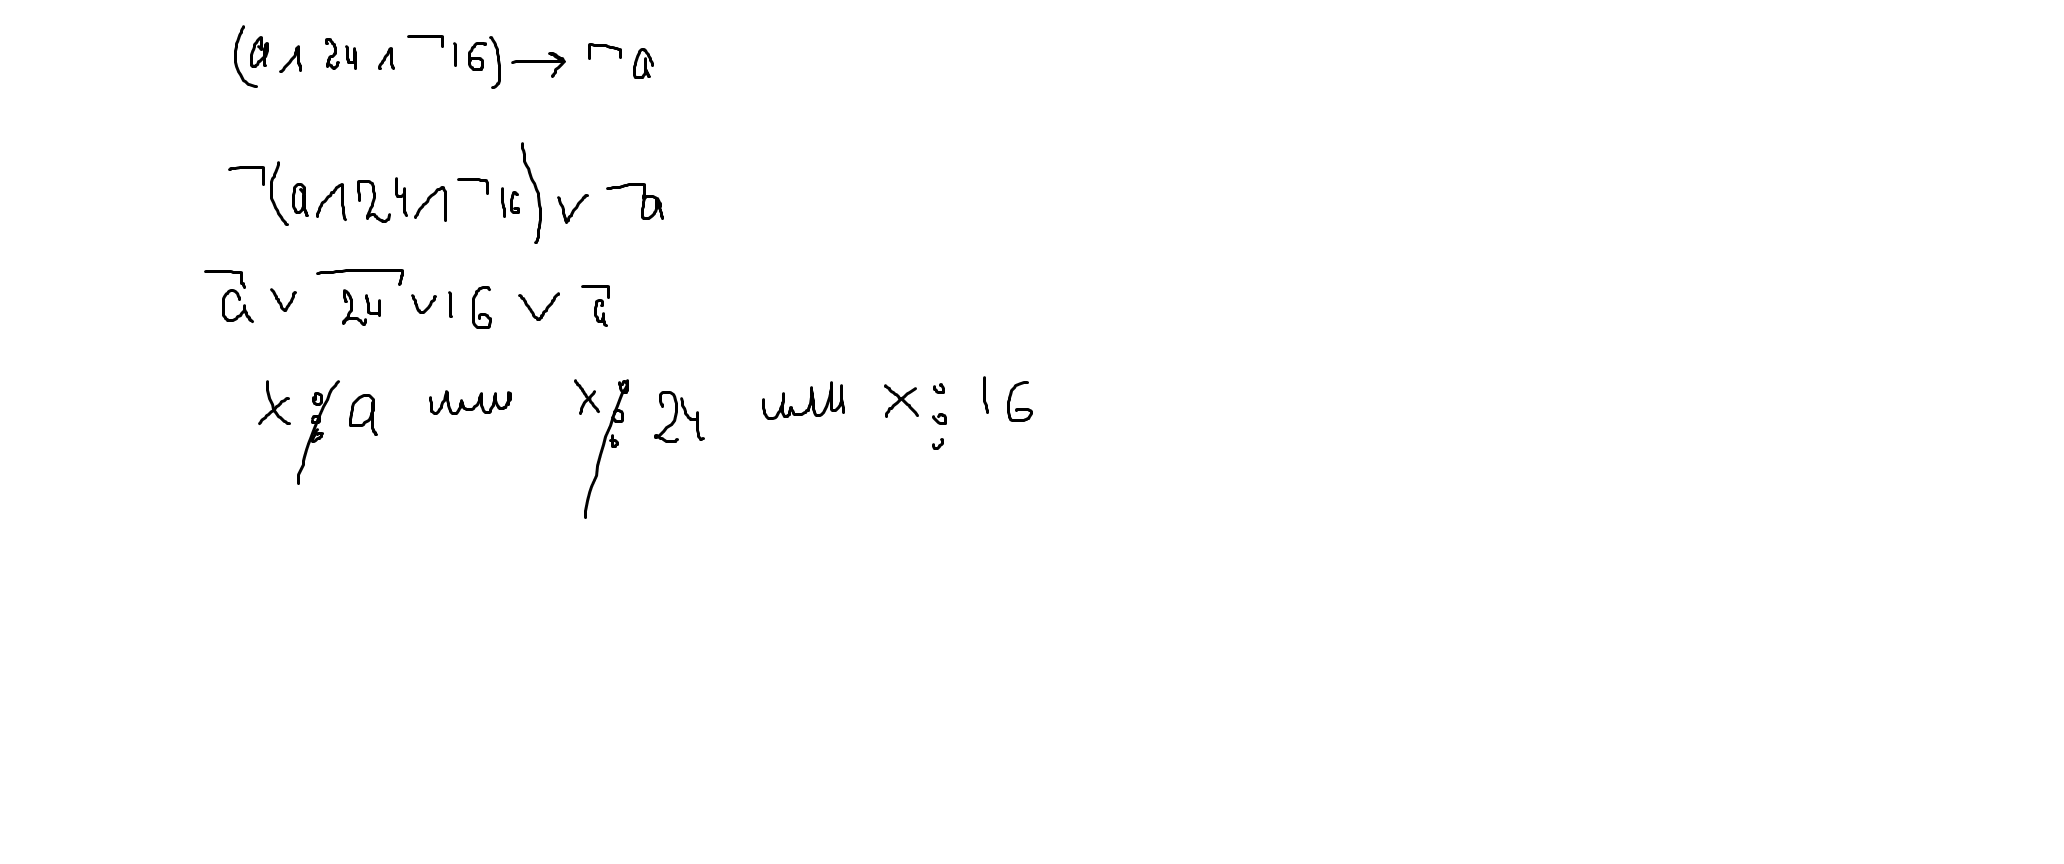 (a ∧ 24 ∧ ¬16) → ¬a
¬(a ∧ 24 ∧ ¬16) ∨ ¬a
¬a ∨ ¬24 ∨ 16 ∨ ¬a
x ⋮̸ a или x ⋮̸ 24 или x ⋮ 16